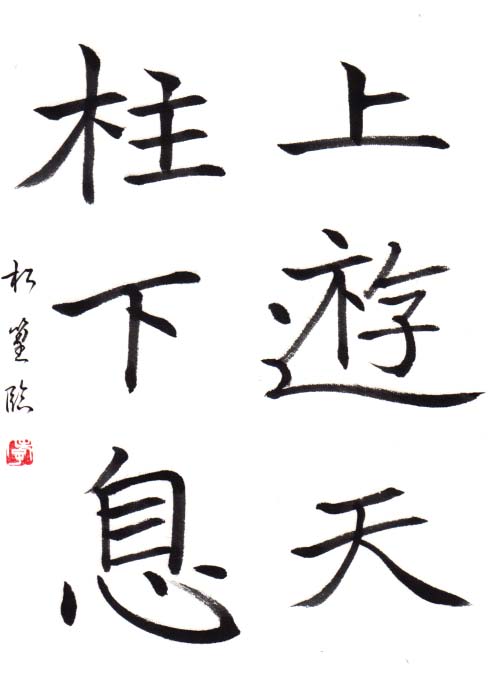 上遊天
柱下息
松篁臨